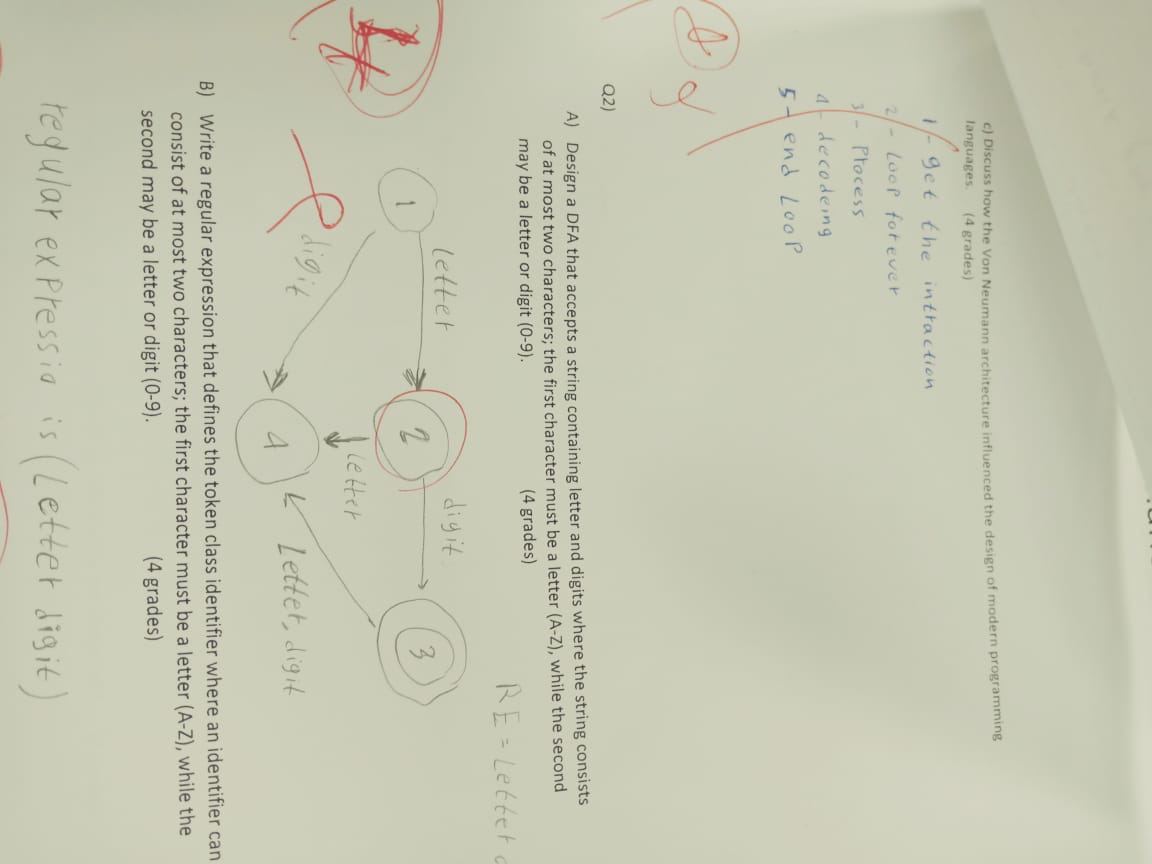 c) Discuss how the Von Neumann architecture influenced the design of modern programming
languages. (4 grades)
1 - get the intraction
2 - Loop forever
3 - Process
4 - decodeing
5 - end Loop
Q2)
A) Design a DFA that accepts a string containing letter and digits where the string consists
of at most two characters; the first character must be a letter (A-Z), while the second
may be a letter or digit (0-9). (4 grades)
RE = Letter
letter
digit
1
2
3
letter
digit
4
Letter, digit
B) Write a regular expression that defines the token class identifier where an identifier can
consist of at most two characters; the first character must be a letter (A-Z), while the
second may be a letter or digit (0-9). (4 grades)
regular expressio is (Letter digit)